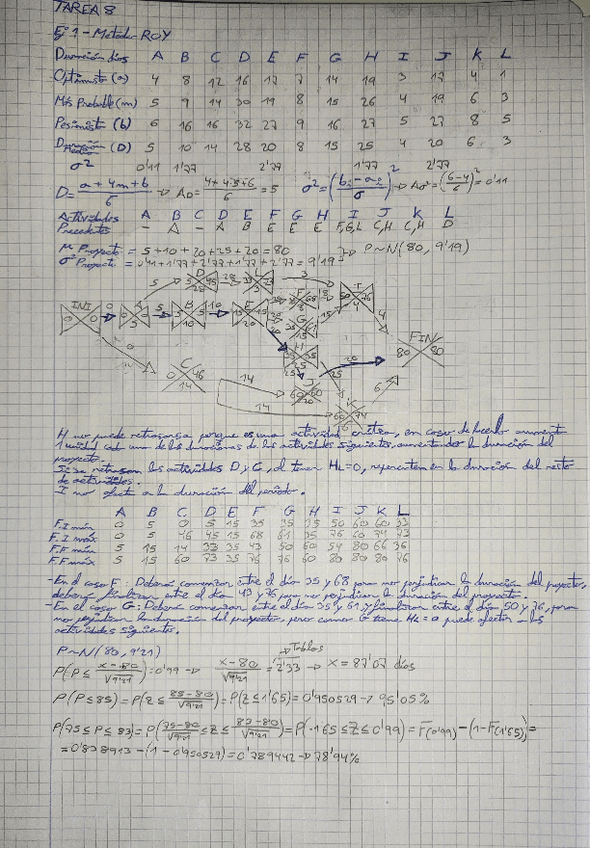 TAREA 8
Ej 1 - Método ROY
Duración días A B C D E F G H I J K L
Optimista (a) 4 8 12 16 17 7 14 19 3 17 4 1
Más Probable (m) 5 9 14 30 19 8 15 26 4 19 6 3
Pesimista (b) 6 16 16 32 27 9 16 27 5 27 8 5
Duración (D) 5 10 14 28 20 8 15 25 4 20 6 3
σ² 0'11 1'77 2'77 1'77 2'77
D = (a + 4m + b)/6 → A_D = (4 + 4·5 + 6)/6 = 5 σ² = ((b - a)/6)² → Aσ² = ((6-4)/6)² = 0'11
Actividades A B C D E F G H I J K L
Precedentes - A - A B E E E F,G,L C,H C,H D
M Proyecto = 5+10+20+25+20 = 80
σ² Proyecto = 0'11+1'77+2'77+1'77+2'77 = 9'19 } → P~N(80, 9'19)
INI 0 0
A 5
B 10
C 0 46 14
D 28
E 15 15 20
F
G
H 35 35 25
I
J 60 60 20
K
L 3
FIN 80 80
H no puede retrasarse porque es una actividad crítica, en caso de hacerlo aumenta
1 unidad cada una de las duraciones de las actividades siguientes, aumentando la duración del
proyecto.
Si se retrasan las actividades D y G, al tener HL=0, repercuten en la duración del resto
de actividades.
I no afecta a la duración del periodo.
A B C D E F G H I J K L
F.I mín 0 5 0 5 15 35 35 35 50 60 60 33
F.I máx 0 5 46 45 15 68 61 35 76 60 74 73
F.F mín 5 15 14 33 35 43 50 60 54 80 66 36
F.F máx 5 15 60 73 35 76 76 60 80 80 80 76
- En el caso F: Deberá comenzar entre el día 35 y 68 para no perjudicar la duración del proyecto,
deberá finalizar entre el día 43 y 76 para no perjudicar la duración del proyecto.
- En el caso G: Deberá comenzar entre el día 35 y 61 y finalizar entre el día 50 y 76, para
no perjudicar la duración del proyecto, pero como G tiene HL=0 puede afectar a las
actividades siguientes.
P~N(80, 9'21) → Tablas
P(P ≤ (x-80)/√9'21) = 0'99 → (x-80)/√9'21 = 2'33 → x = 87'07 días
P(P ≤ 85) = P(Z ≤ (85-80)/√9'21) = P(Z ≤ 1'65) = 0'950529 → 95'05%
P(75 ≤ P ≤ 83) = P((75-80)/√9'21 ≤ Z ≤ (83-80)/√9'21) = P(-1'65 ≤ Z ≤ 0'99) = F(0'99) - (1 - F(1'65)) =
= 0'838913 - (1 - 0'950529) = 0'789442 → 78'94%